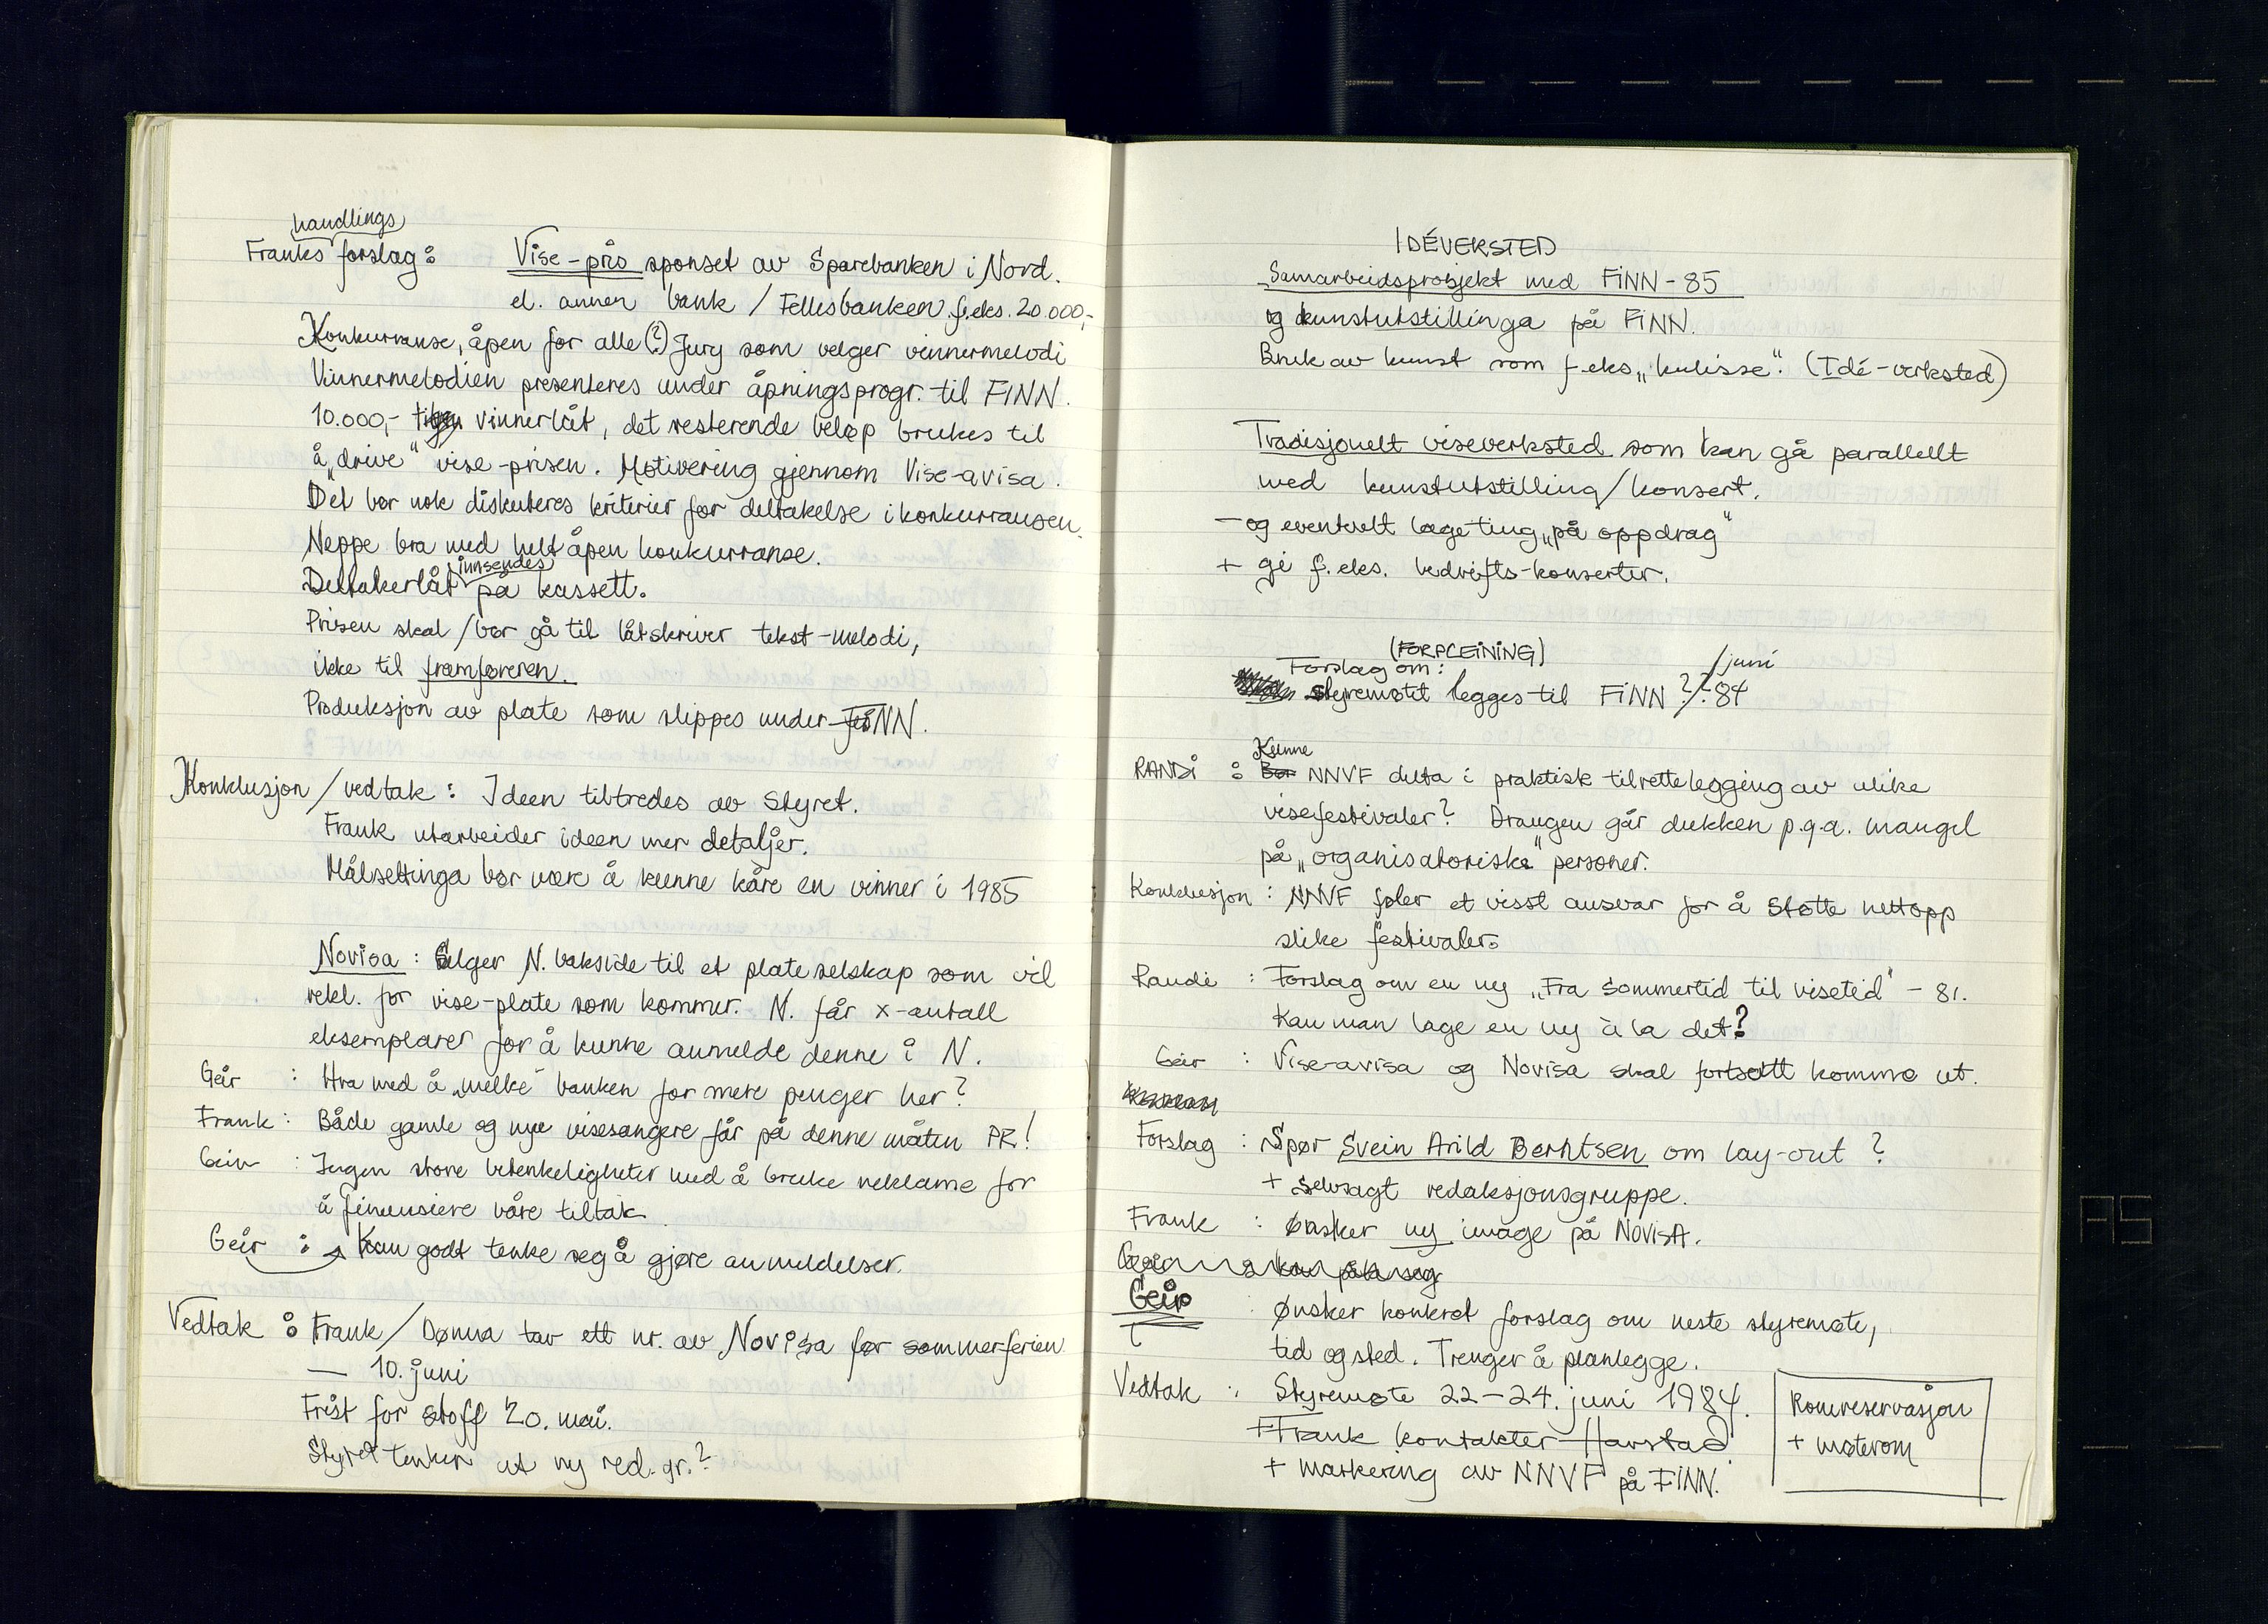 handlings
Franks forslag: Vise-pris sponset av Sparebanken i Nord.
el. annen bank / Fellesbanken f.eks. 20.000,-
Konkurranse, åpen for alle (?) Jury som velger vinnermelodi
Vinnermelodien presenteres under åpningsprogr. til FINN.
10.000,- til vinnerlåt, det resterende beløp brukes til
å „drive" vise-prisen. Motivering gjennom Vise-avisa.
Det bør nok diskuteres kriterier for deltakelse i konkurransen.
Neppe bra med helt åpen konkurranse.
innsendes
Deltakerlåt på kassett.
Prisen skal / bør gå til låtskriver tekst-melodi,
ikke til framføreren.
Produksjon av plate som slippes under FINN.
Konklusjon / vedtak : Ideen tiltredes av styret.
Frank utarbeider ideen mer detaljer.
Målsettinga bør være å kunne kåre en vinner i 1985
Novisa : Selger N. bakside til et plateselskap som vil
rekl. for vise-plate som kommer. N. får x-antall
eksemplarer for å kunne anmelde denne i N.
Geir : Hva med å „melke" banken for mere penger her?
Frank : Både gamle og nye visesangere får på denne måten PR!
Geir : Ingen store betenkeligheter med å bruke reklame for
å finansiere våre tiltak
Geir : Kan godt tenke seg å gjøre anmeldelser.
Vedtak : Frank / Dønna tar ett nr. av Novisa før sommerferien
— 10. juni
Frist for stoff 20. mai.
Styret tenker ut ny red. gr.?
IDÉVERKSTED
Samarbeidsprosjekt med FINN-85
og kunstutstillinga på FINN.
Bruk av kunst som f.eks „kulisse". (Idé-verksted)
Tradisjonelt viseverksted som kan gå parallellt
med kunstutstilling/konsert.
- og eventuelt lage ting „på oppdrag"
+ gi f.eks. bedrifts-konserter.
(FORPLEINING)
Forslag om: juni
styremøtet legges til FINN ?/?-84
Kunne
RANDI : Bør NNVF delta i praktisk tilrettelegging av ulike
visefestivaler? Draugen går dukken p.g.a. mangel
på „organisatoriske" personer.
Konklusjon : NNVF føler et visst ansvar for å støtte nettopp
slike festivaler.
Randi : Forslag om en ny „Fra sommertid til visetid" - 81.
Kan man lage en ny à la det?
Geir : Vise-avisa og Novisa skal fortsatt komme ut.
Forslag : Spør Svein Arild Berntsen om lay-out ?
+ selvsagt redaksjonsgruppe.
Frank : Ønsker ny image på NOVISA.
Geir kan på seg
Geir : Ønsker konkret forslag om neste styremøte,
tid og sted. Trenger å planlegge.
Vedtak : Styremøte 22-24. juni 1984.
+ Frank kontakter Harstad
+ markering av NNVF på FINN.
Romreservasjon
+ møterom